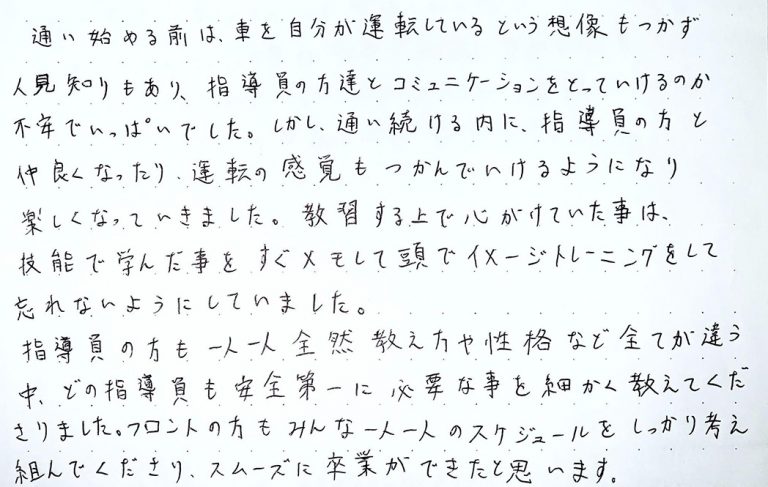 通い始める前は、車を自分が運転しているという想像もつかず
人見知りもあり、指導員の方達とコミュニケーションをとっていけるのか
不安でいっぱいでした。しかし、通い続ける内に、指導員の方と
仲良くなったり、運転の感覚もつかんでいけるようになり
楽しくなっていきました。教習する上で心がけていた事は、
技能で学んだ事をすぐメモして頭でイメージトレーニングをして
忘れないようにしていました。
指導員の方も一人一人全然教え方や性格など全てが違う
中、どの指導員も安全第一に必要な事を細かく教えてくだ
さりました。フロントの方もみんな一人一人のスケジュールをしっかり考え
組んでくださり、スムーズに卒業ができたと思います。